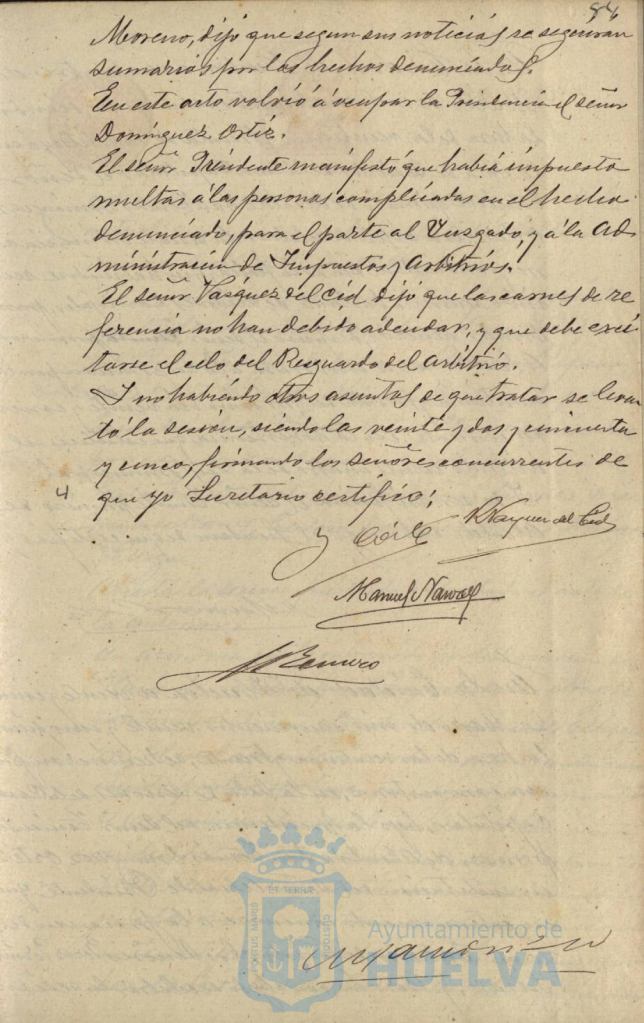 84
Moreno, dijo que segun sus noticias se seguiran
sumarios por los hechos denunciados.
En este acto volvió á ocupar la Presidencia el señor
Domínguez Ortiz.
El señor Presidente manifestó que habia impuesto
multas á las personas complicadas en el hecho
denunciado, para el parte al Juzgado, y á la Ad-
ministración de Impuestos y Arbitrios.
El señor Vasquez del Cid dijo que las carnes de re
ferencia no han debido adeudar, y que debe exci-
tarse el celo del Resguardo del Arbitrio.
Y no habiendo otros asuntos de que tratar se levan
tó la sesión, siendo las veinte y dos y cincuenta
y cinco, firmando los señores concurrentes de
que yo Secretario certifico;
4
R Vazquez del Cid
Manuel Navarro
Romero
PORTUS MARIS
ET TERRÆ
CUSTODIA
Ayuntamiento de
HUELVA